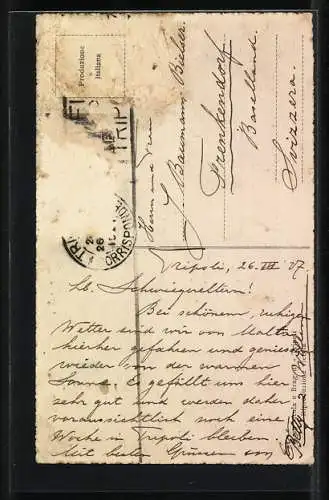 Produzione
italiana
TRIPOLI
26
CORRISPONDENZE
Herrn und Frau
J. Baumann-Bieler
Frenkendorf
Baselland.
Svizzera.
Tripoli, 26. III 27
Lb. Schwiegereltern!
Bei schönem, ruhigen
Wetter sind wir von Malta
hierher gefahren und geniessen
wieder von der warmen
Sonne. Es gefällt uns hier
sehr gut und werden daher
voraussichtlich noch eine
Woche in Tripoli bleiben.
Mit besten Grüssen von
Betty &